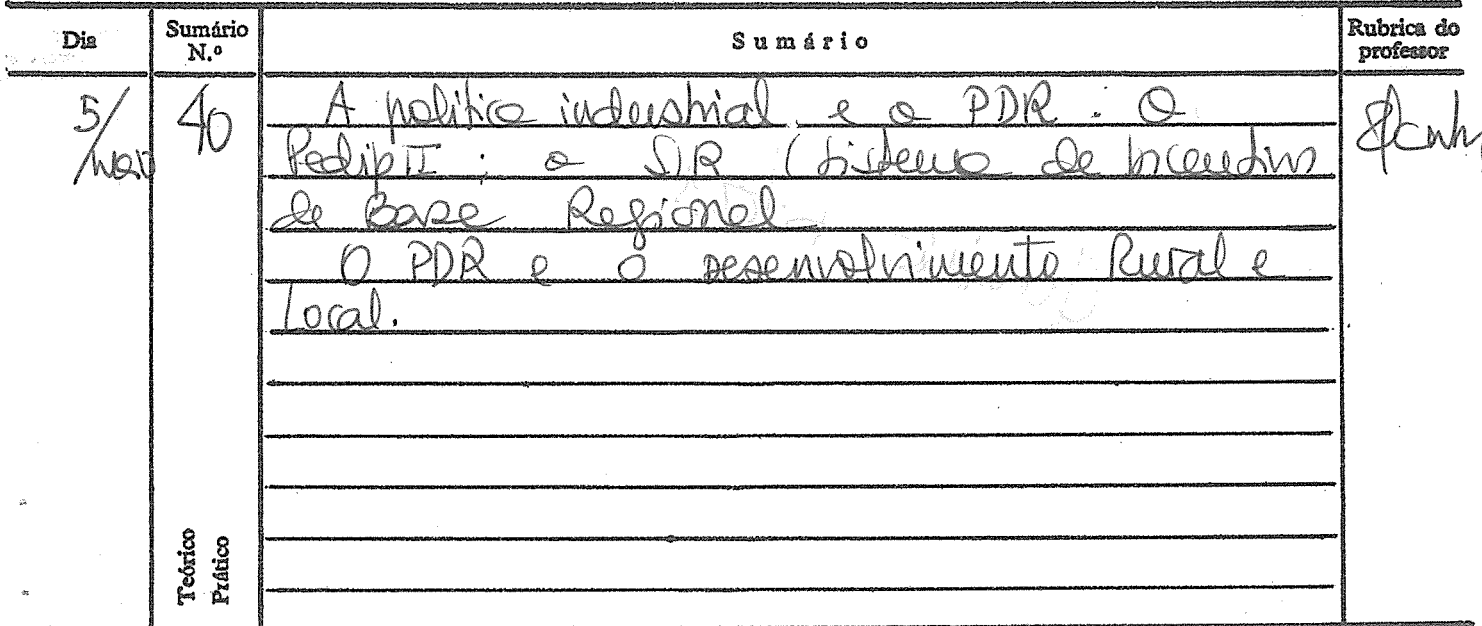 Dia
Sumário N.º
Sumário
Rubrica do professor
5/Maio
40
A politica industrial e o PDR : O
Pedip II ; o SIR (Sistema de Incentivos
de Base Regional
O PDR e o desenvolvimento Rural e
Local.
Teórico
Prático